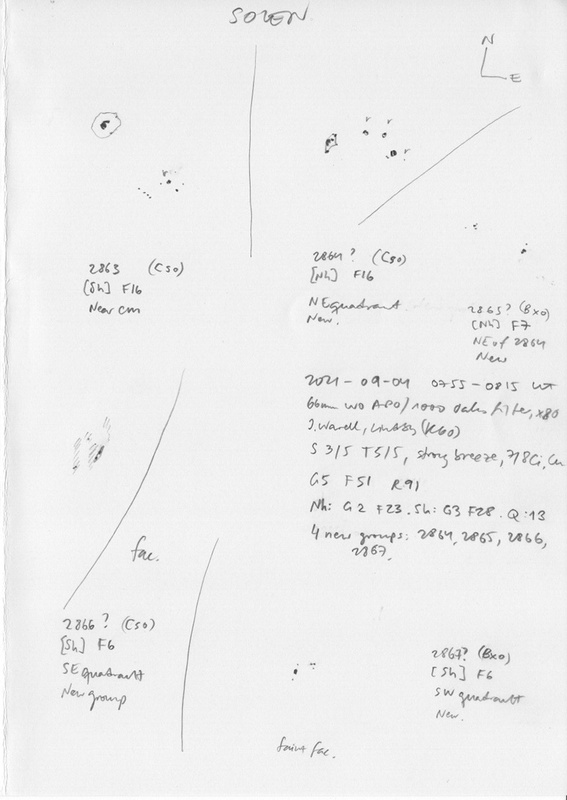 SOLEN
N
E
2863 (Cso)
[Sh] F16
Near cm
2864? (Cso)
[Nh] F16
NE quadrant
New.
2865? (Bxo)
[Nh] F7
NE of 2864
New
2021-09-04 0755-0815 UT
66mm WO APO/1000 Oaks filter, x80
J. Warell, Lindby (K60)
S 3/5 T5/5, strong breeze, 7/8 Ci, Cu
G5 F51 R91
Nh: G2 F23. Sh: G3 F28. Q:13
4 new groups: 2864, 2865, 2866,
2867.
fac.
2866? (Cso)
[Sh] F6
SE quadrant
New group
2867? (Bxo)
[Sh] F6
SW quadrant
New.
faint fac.